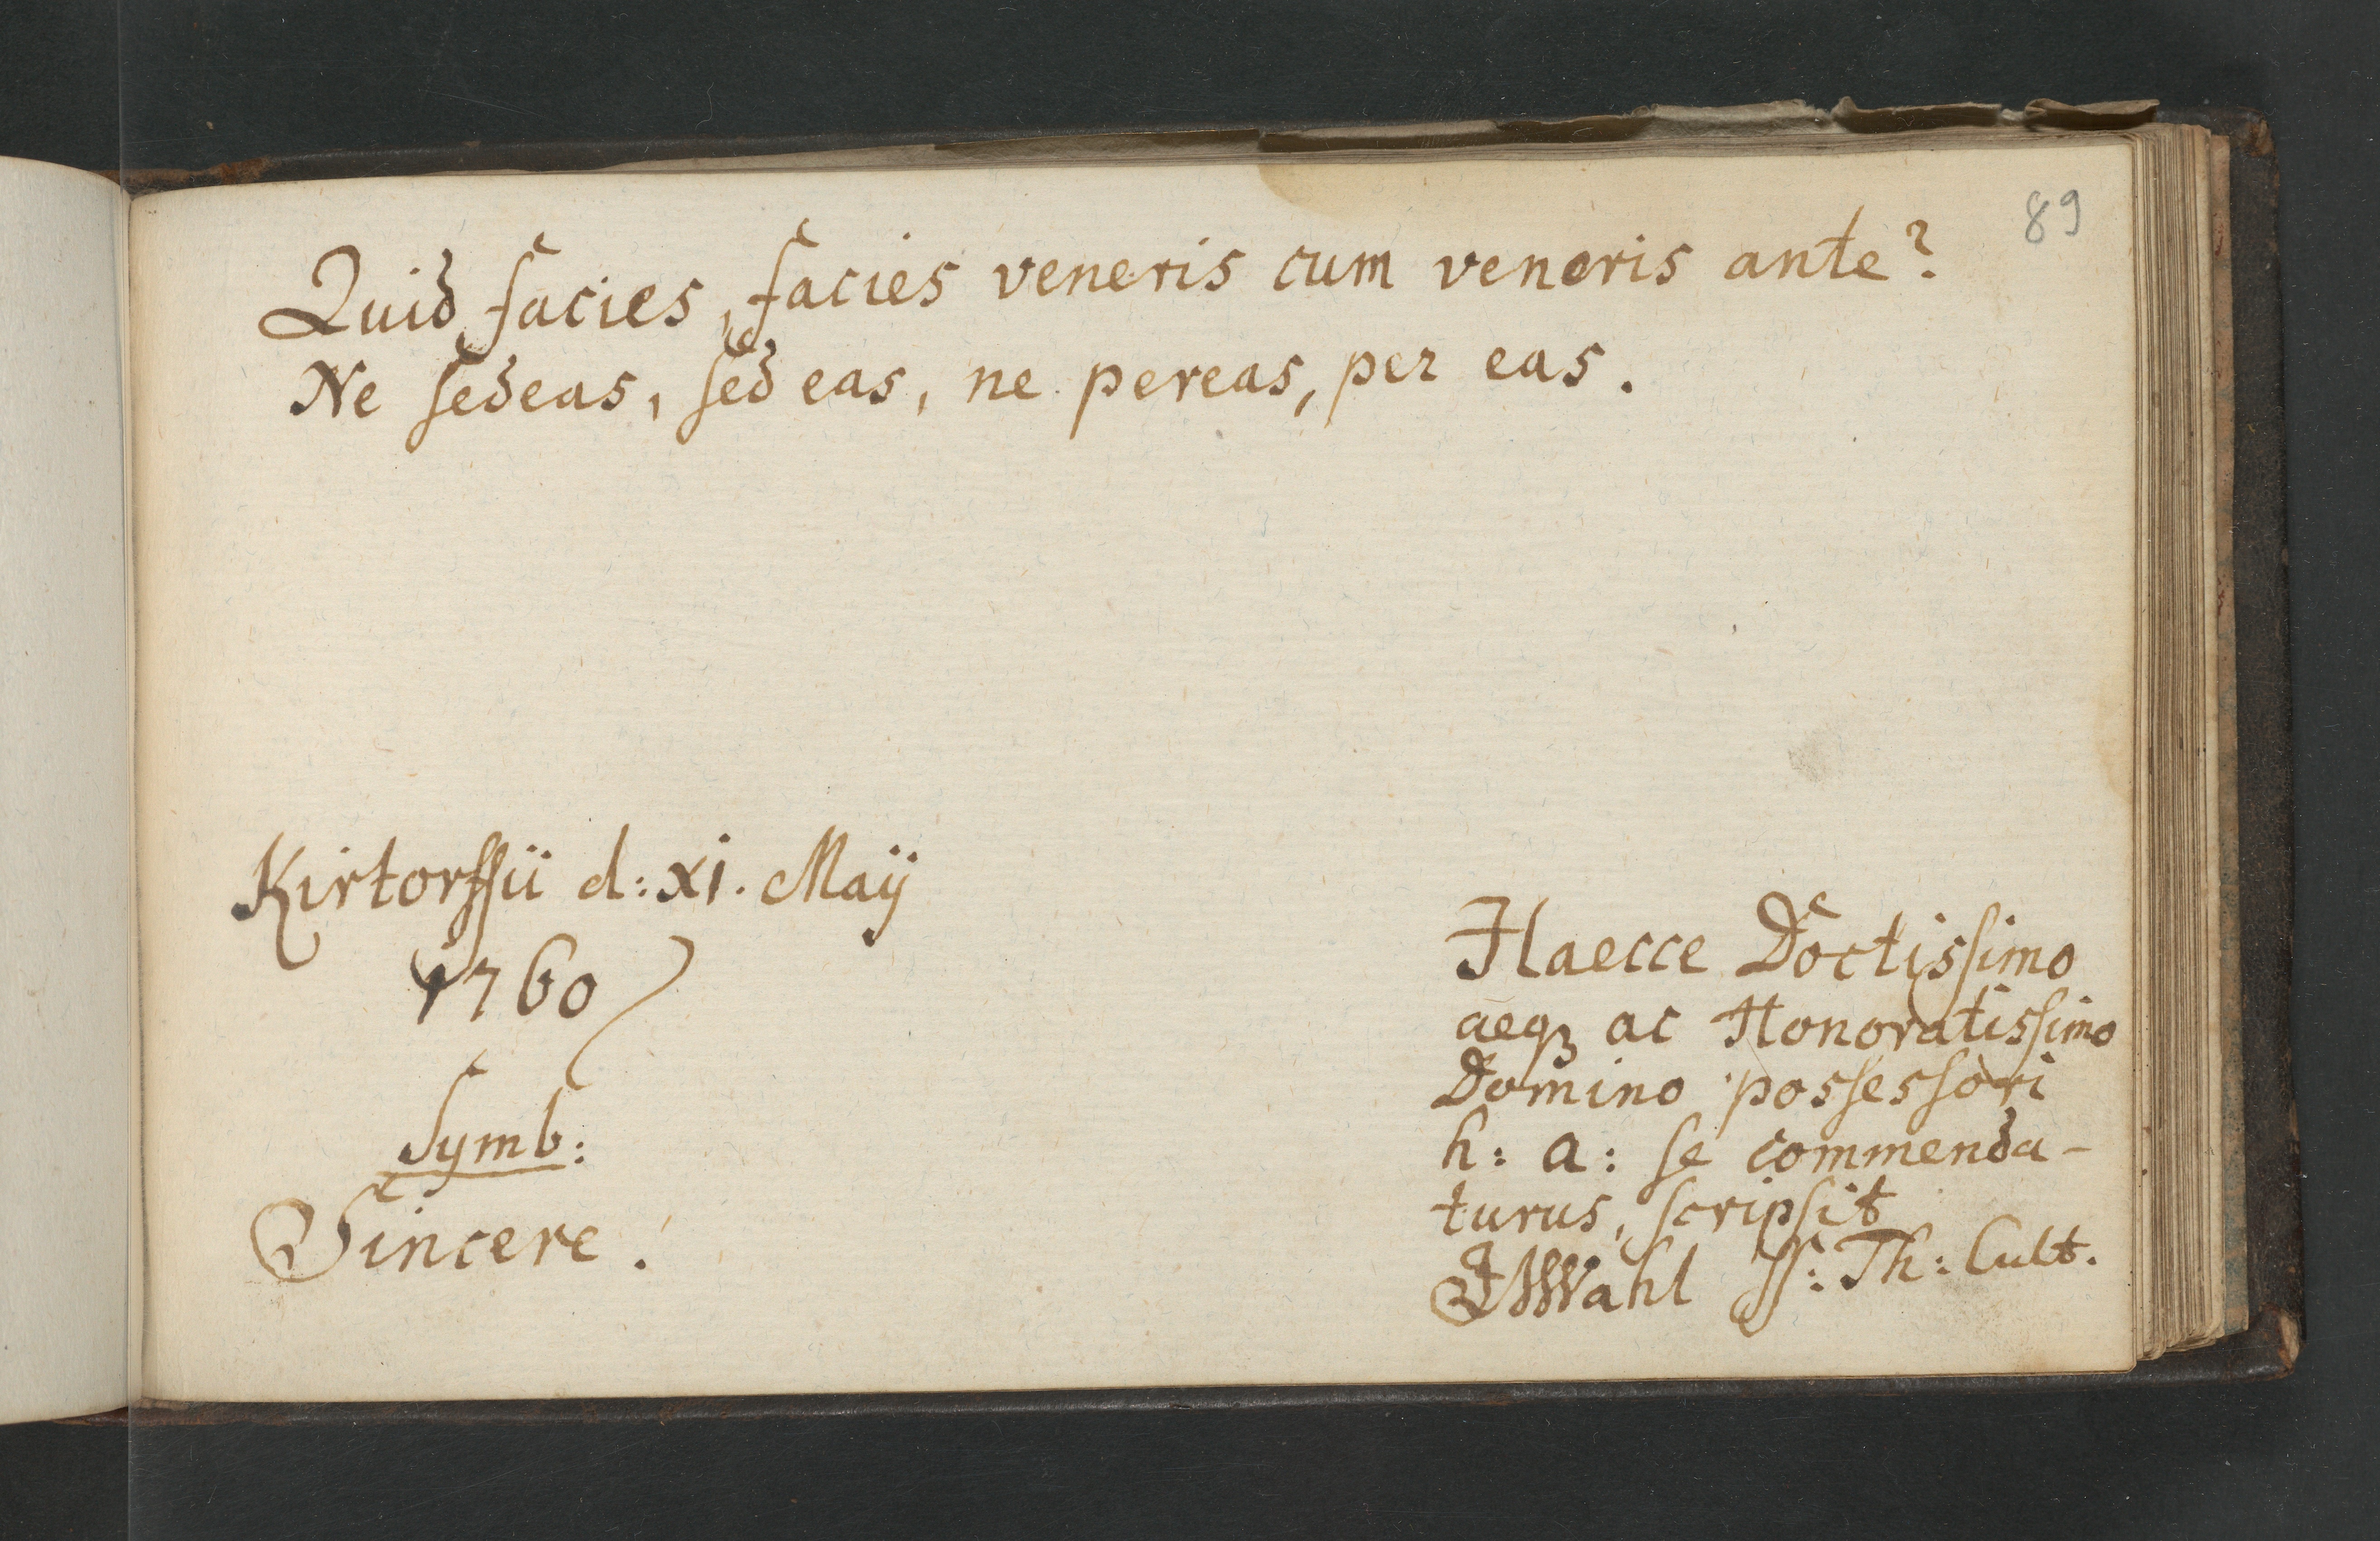 89
Quid facies, facies veneris cum veneris ante?
Ne ſedeas, ſed eas, ne pereas, per eas.
Kirtorffii d: xi. Maij
1760
Symb:
Sincere.
Haecce Doctisſimo
aeqꝫ ac Honoratisſimo
Domino posſesſori
h: a: ſe commenda-
turus, ſcripſit
JWahl SS: Th: Cult.